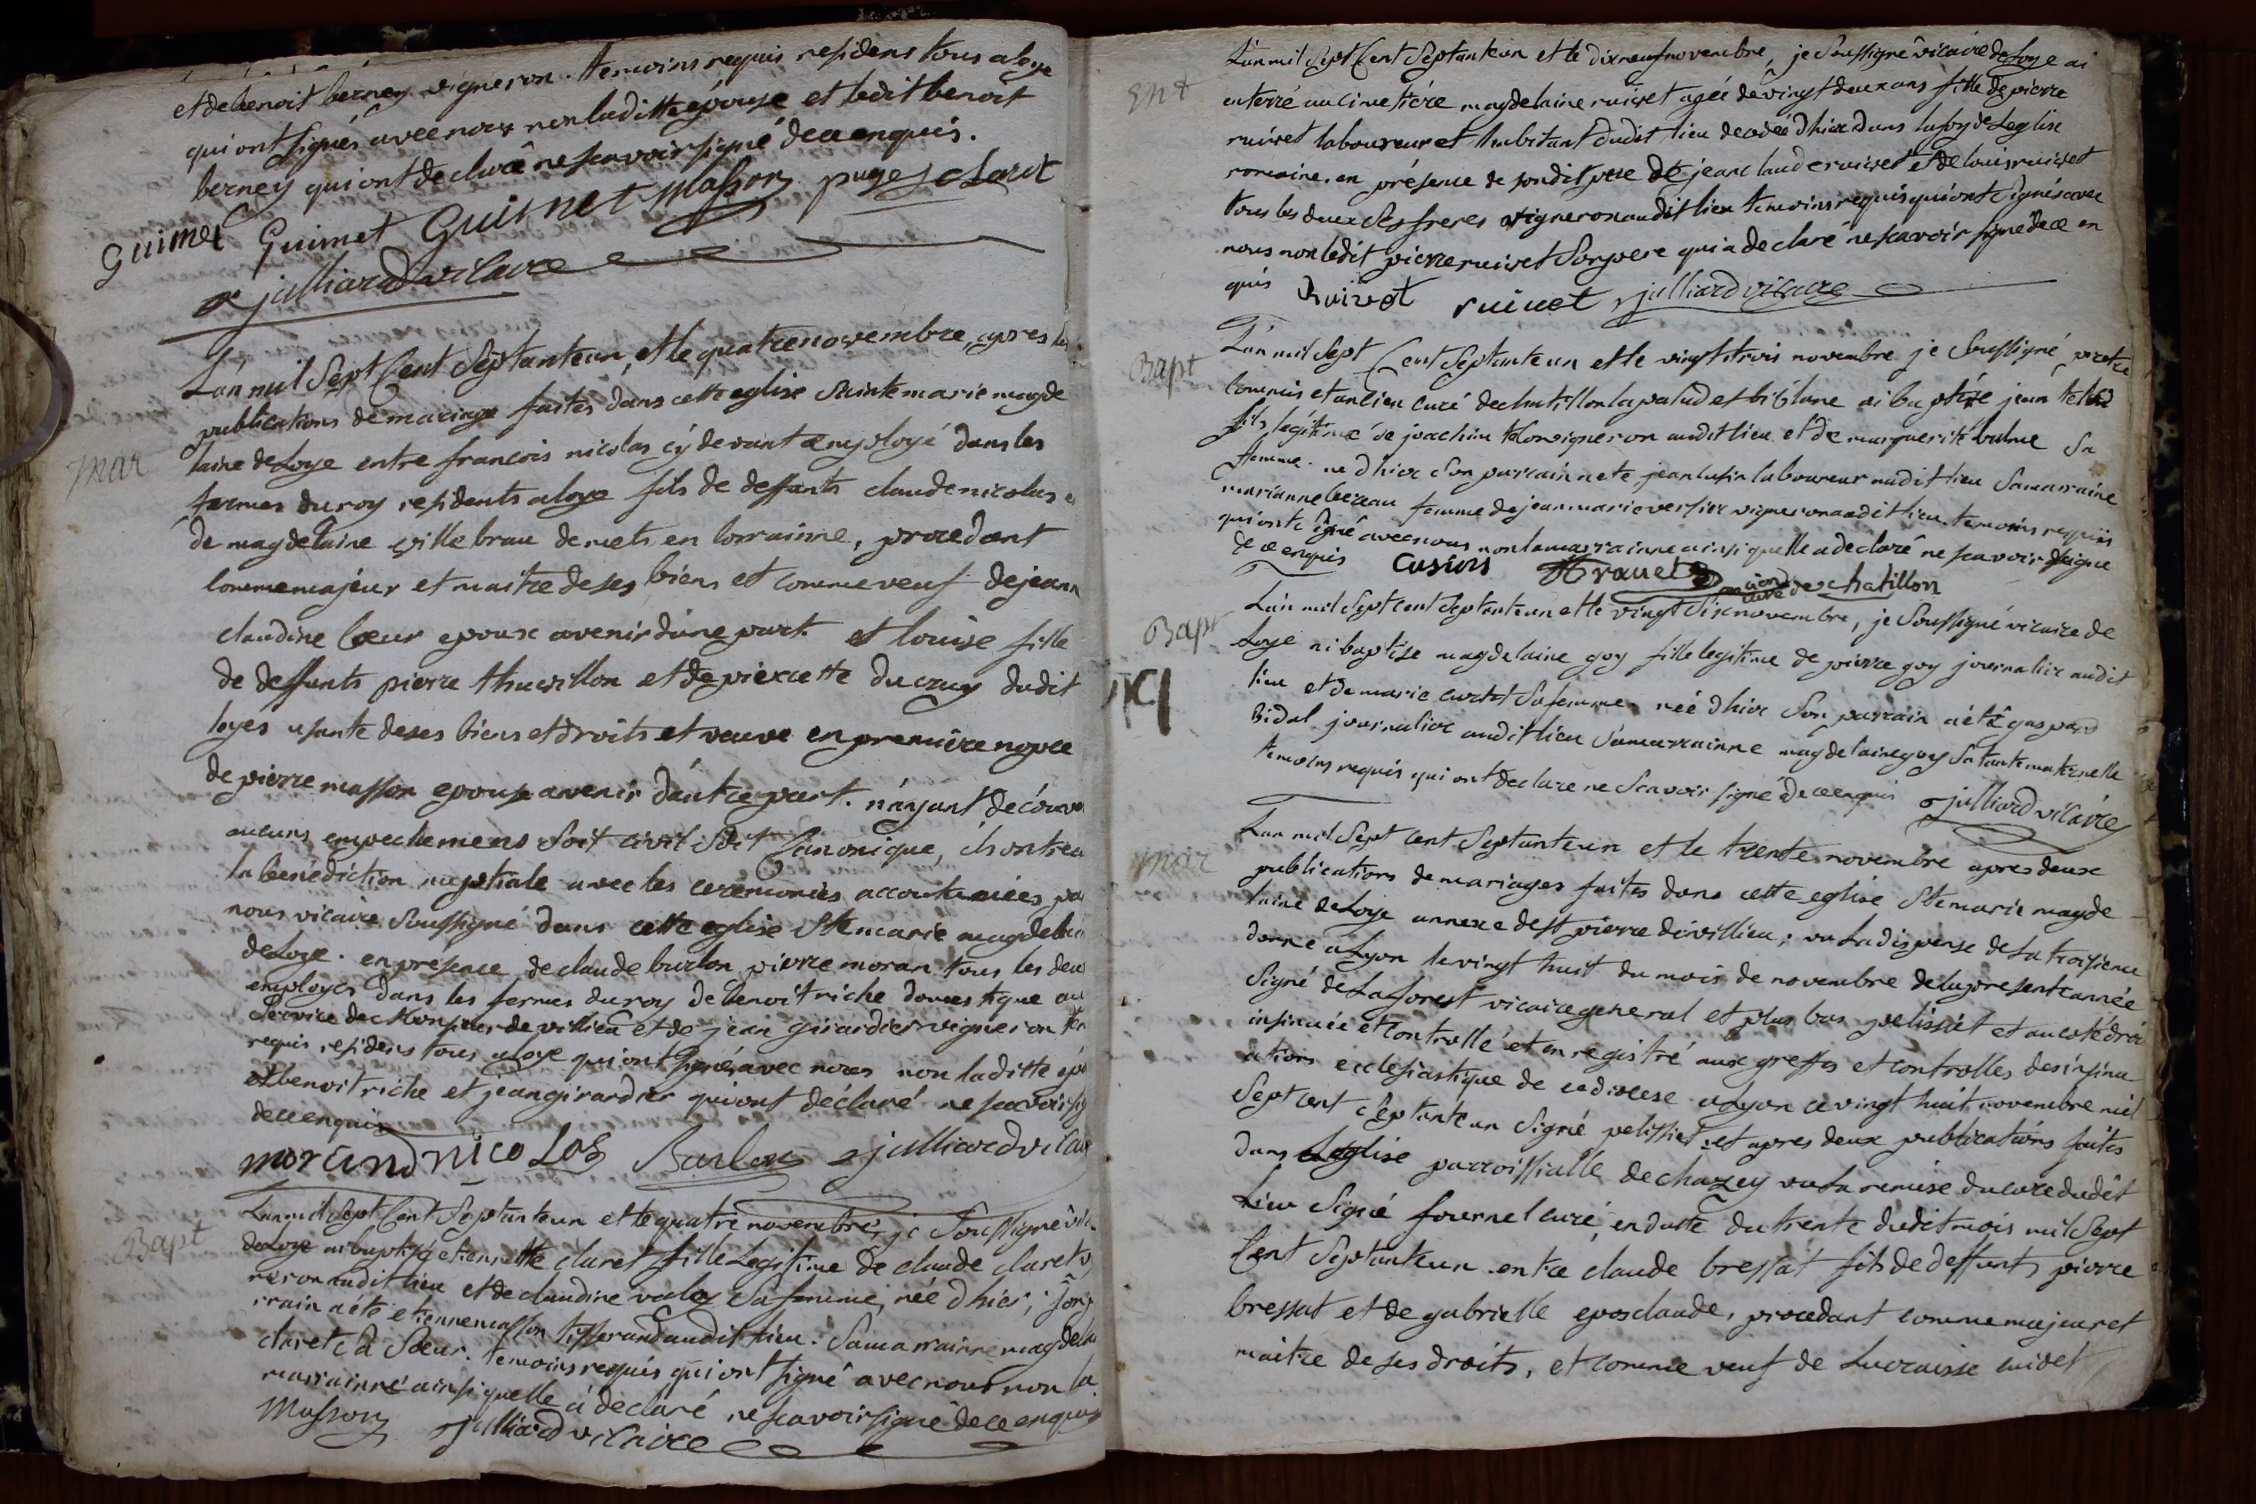 et de benoit berney vigneron. temoins requis residens tous a loye
qui ont signés avec nous non laditte épouse et ledit benoit
berney qui ont declaré ne scavoir signé de ce enquis.
Guimet Guimet Guimet Masson puges claret
julliard vicaire
L'an mil Sept Cent Septanteun, et le quatre novembre, apres les
publications de mariage faites dans cette eglise Sainte marie magde
mar
laine de Loye entre francois nicolas cÿ devant employé dans les
fermes du roy residents a loye fils de deffunts claude nicolas e
de magdelaine villebrau de mets en lorrainne, procedant
comme majeur et maitre de ses biens et comme veuf de jeann
claudine cœur epoux avenir dune part. et louise fille
de deffunts pierre thuvillon et de pierrette ducruy dudit
loyes usante de ses biens et droits et veuve en première nopce
de pierre masson epouse avenir d'autre part. n'ayant découve
aucuns empechemens Soit civil Soit Canonique, ils ont reçu
la benédiction nuptiale avec les ceremonies accoutumées pa
nous vicaire Soussigné dans cette eglise Ste marie magdelai
de Loye. en presence de claude burlon pierre moran tous les deu
employes dans les fermes du roy de benoit riche domestique au
Service de Monsieur de villieu et de jean girardier vigneron tem
requis residens tous a loye qui ont signé avec nous non laditte épo
et benoit riche et jean girardier qui ont déclaré ne scavoir sig
de ce enquis
morand nicolas Burlon julliard vicaire
Bapt
L'an mil Sept Cent Septanteun et le quatre novembre, je Soussigné vic
de Loye ai baptisé etiennette claret fille Legitime de claude claret v
neron audit lieu et de claudine valoy Sa femme, née d'hier; Son p
rrain a été etienne masson tisserand audit lieu. Sa marrainne magdela
claret Sa Sœur. temoins requis qui ont signé avec nous non la
marrainne ainsi quelle a declaré ne scavoir signé de ce enquis
Masson julliard vicaire
Ent
L'an mil Sept Cent Septanteun et le dixneuf novembre, je Soussigné vicaire de Loye ai
enterré au cimetiére magdelaine ruivet agée de vingt deux ans fille de pierre
ruivet laboureur et habitant dudit lieu decedée d'hier dans la foy de Leglise
romaine. en présence de sondit pere de jean claude ruivet et de louis ruivet
tous les deux Ses freres vigneron audit lieu temoins requis qui ont Signés avec
nous non ledit pierre ruivet Son pere qui a declaré ne scavoir signé de ce en
quis Ruivet ruivet julliard vicaire
Bapt
L'an mil Sept Cent Septanteun et le vingt trois novembre je Soussigné pretre
commis et ancien curé de chatillon lapalud et ai baptisé jean
fils légitime de joachim vigneron audit lieu et de marguerite Sa
femme. ne d'hier Son parrain a ete jean laboureur audit lieu Sa marraine
marianne femme de jean marie versier vigneron audit lieu. temoins requis
qui ont signé avec nous non la marrainne ainsi quelle a declaré ne scavoir Signé
de ce enquis Cusins Travet curé de chatillon
Bapt
L'an mil Sept cent Septanteun et le vingt Six novembre, je Soussigné vicaire de
Loye ai baptise magdelaine goy fille legitime de pierre goy journalier audit
lieu et de marie curtet Sa femme née d'hier Son parrain a été gaspard
Bidal journalier audit lieu Sa marrainne magdelaine goy Sa tante maternelle
temoins requis qui ont declaré ne Scavoir signé de ce enquis julliard vicaire
mar
L'an mil Sept cent Septanteun et le trente novembre apres deux
publications de mariages faites dans cette eglise Ste marie magde
laine de Loye annexe de st pierre de villieu; vu la dispense de la troisieme
donné a Lyon le vingt huit du mois de novembre de la presente année
Signé de Laforest vicaire general et plus bas pelissiet et au coté droi
insinuée et controllé et enregistré aux greffes et controlles des insinu
ations ecclesiastique de ce diocese a Lyon ce vingt huit novembre mil
Sept cent Septanteun Signé pelissiet et apres deux publications faites
dans Leglise parroissialle de chazey vu la remise du cure dudit
Lieu Signé fournel curé, en datte du trente dudit mois mil Sept
Cent Septanteun entre claude bressat fils de deffunts pierre
bressat et de gabrielle eposclaude, procedant comme majeur et
maitre de ses droits, et comme veuf de